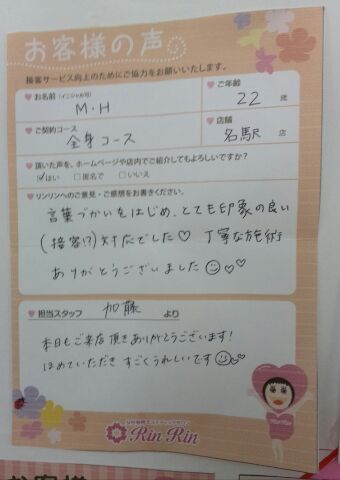 お客様の声
接客サービス向上のためにご協力をお願いいたします。
お名前(イニシャル可)
M・H
ご年齢
22 歳
ご契約コース
全身コース
店舗
名駅 店
頂いた声を、ホームページや店内でご紹介してもよろしいですか?
☑はい □匿名で □いいえ
リンリンへのご意見・ご感想をお書きください。
言葉づかいをはじめ、とても印象の良い
(接客!?)対応でした♡ 丁寧な施術
ありがとうございました☺♡♡
担当スタッフ 加藤 より
本日もご来店頂きありがとうございます!
ほめていただき すごくうれしいです☺♡♡
Rin Rin
お客様